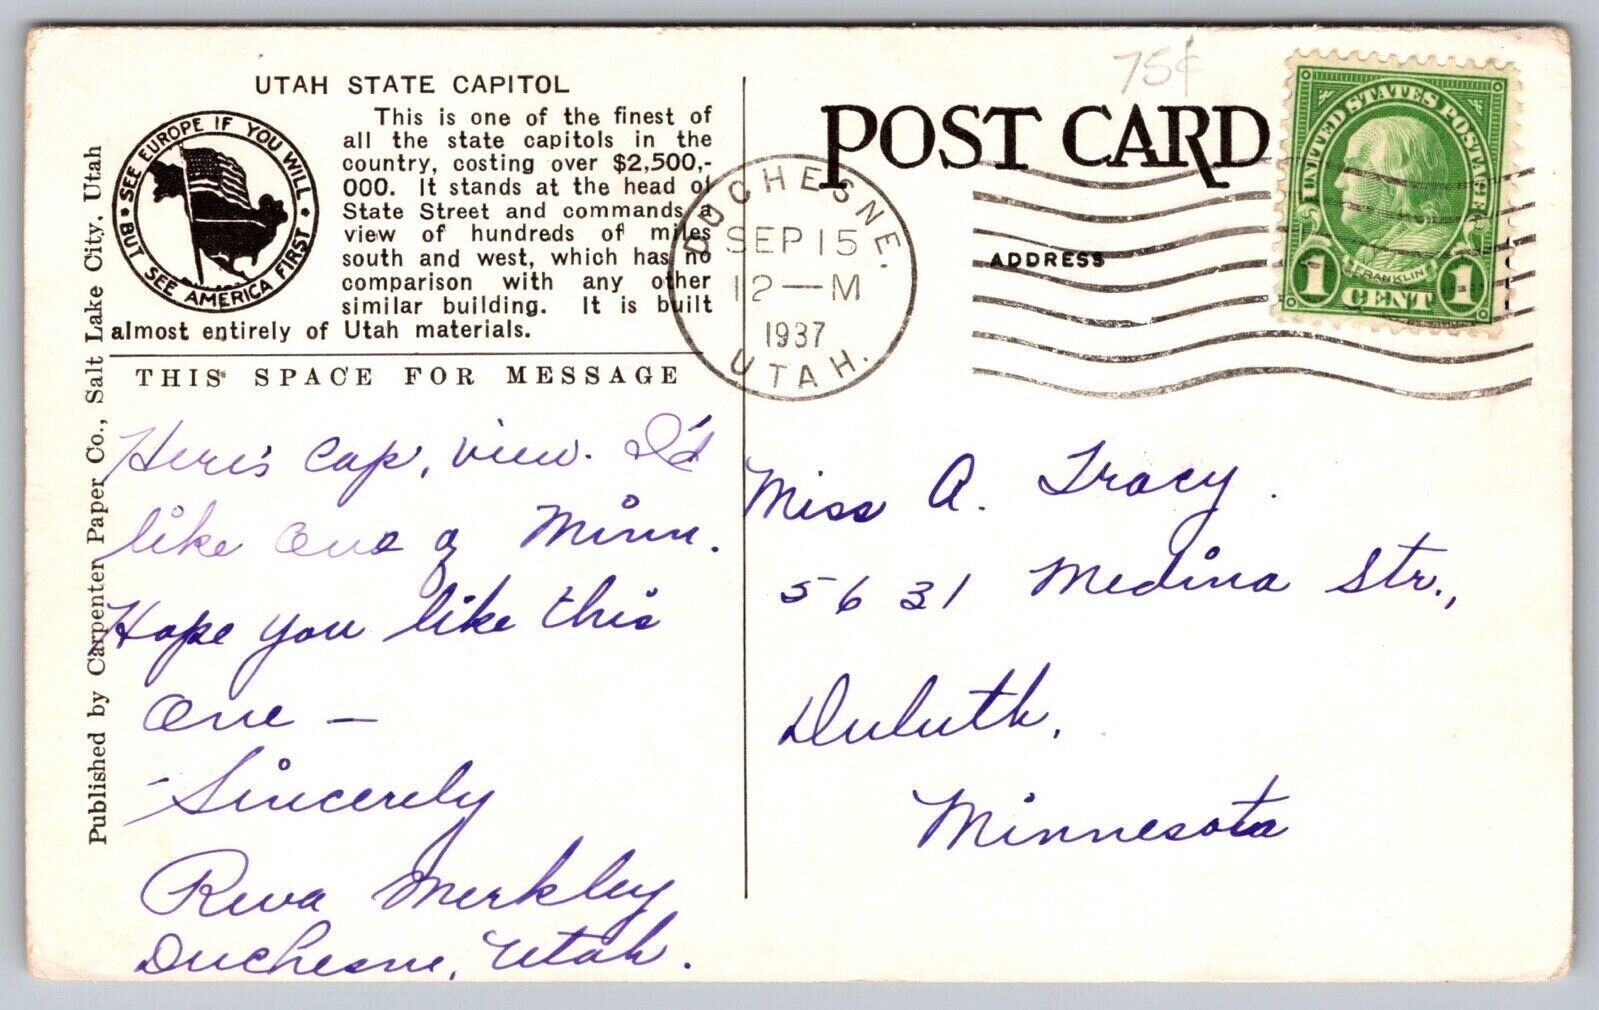 75¢
UTAH STATE CAPITOL
SEE EUROPE IF YOU WILL
BUT SEE AMERICA FIRST
This is one of the finest of
all the state capitols in the
country, costing over $2,500,-
000. It stands at the head of
State Street and commands a
view of hundreds of miles
south and west, which has no
comparison with any other
similar building. It is built
almost entirely of Utah materials.
THIS SPACE FOR MESSAGE
Published by Carpenter Paper Co., Salt Lake City, Utah
Here's Cap. view. I'd
like one of Minn.
Hope you like this
one —
- Sincerely
Reva Merkley
Duchesne, Utah.
POST CARD
ADDRESS
DUCHESNE.
SEP 15
12—M
1937
UTAH.
UNITED STATES POSTAGE
FRANKLIN
1 CENT 1
Miss A. Tracy.
5631 Medina Str.,
Duluth,
Minnesota